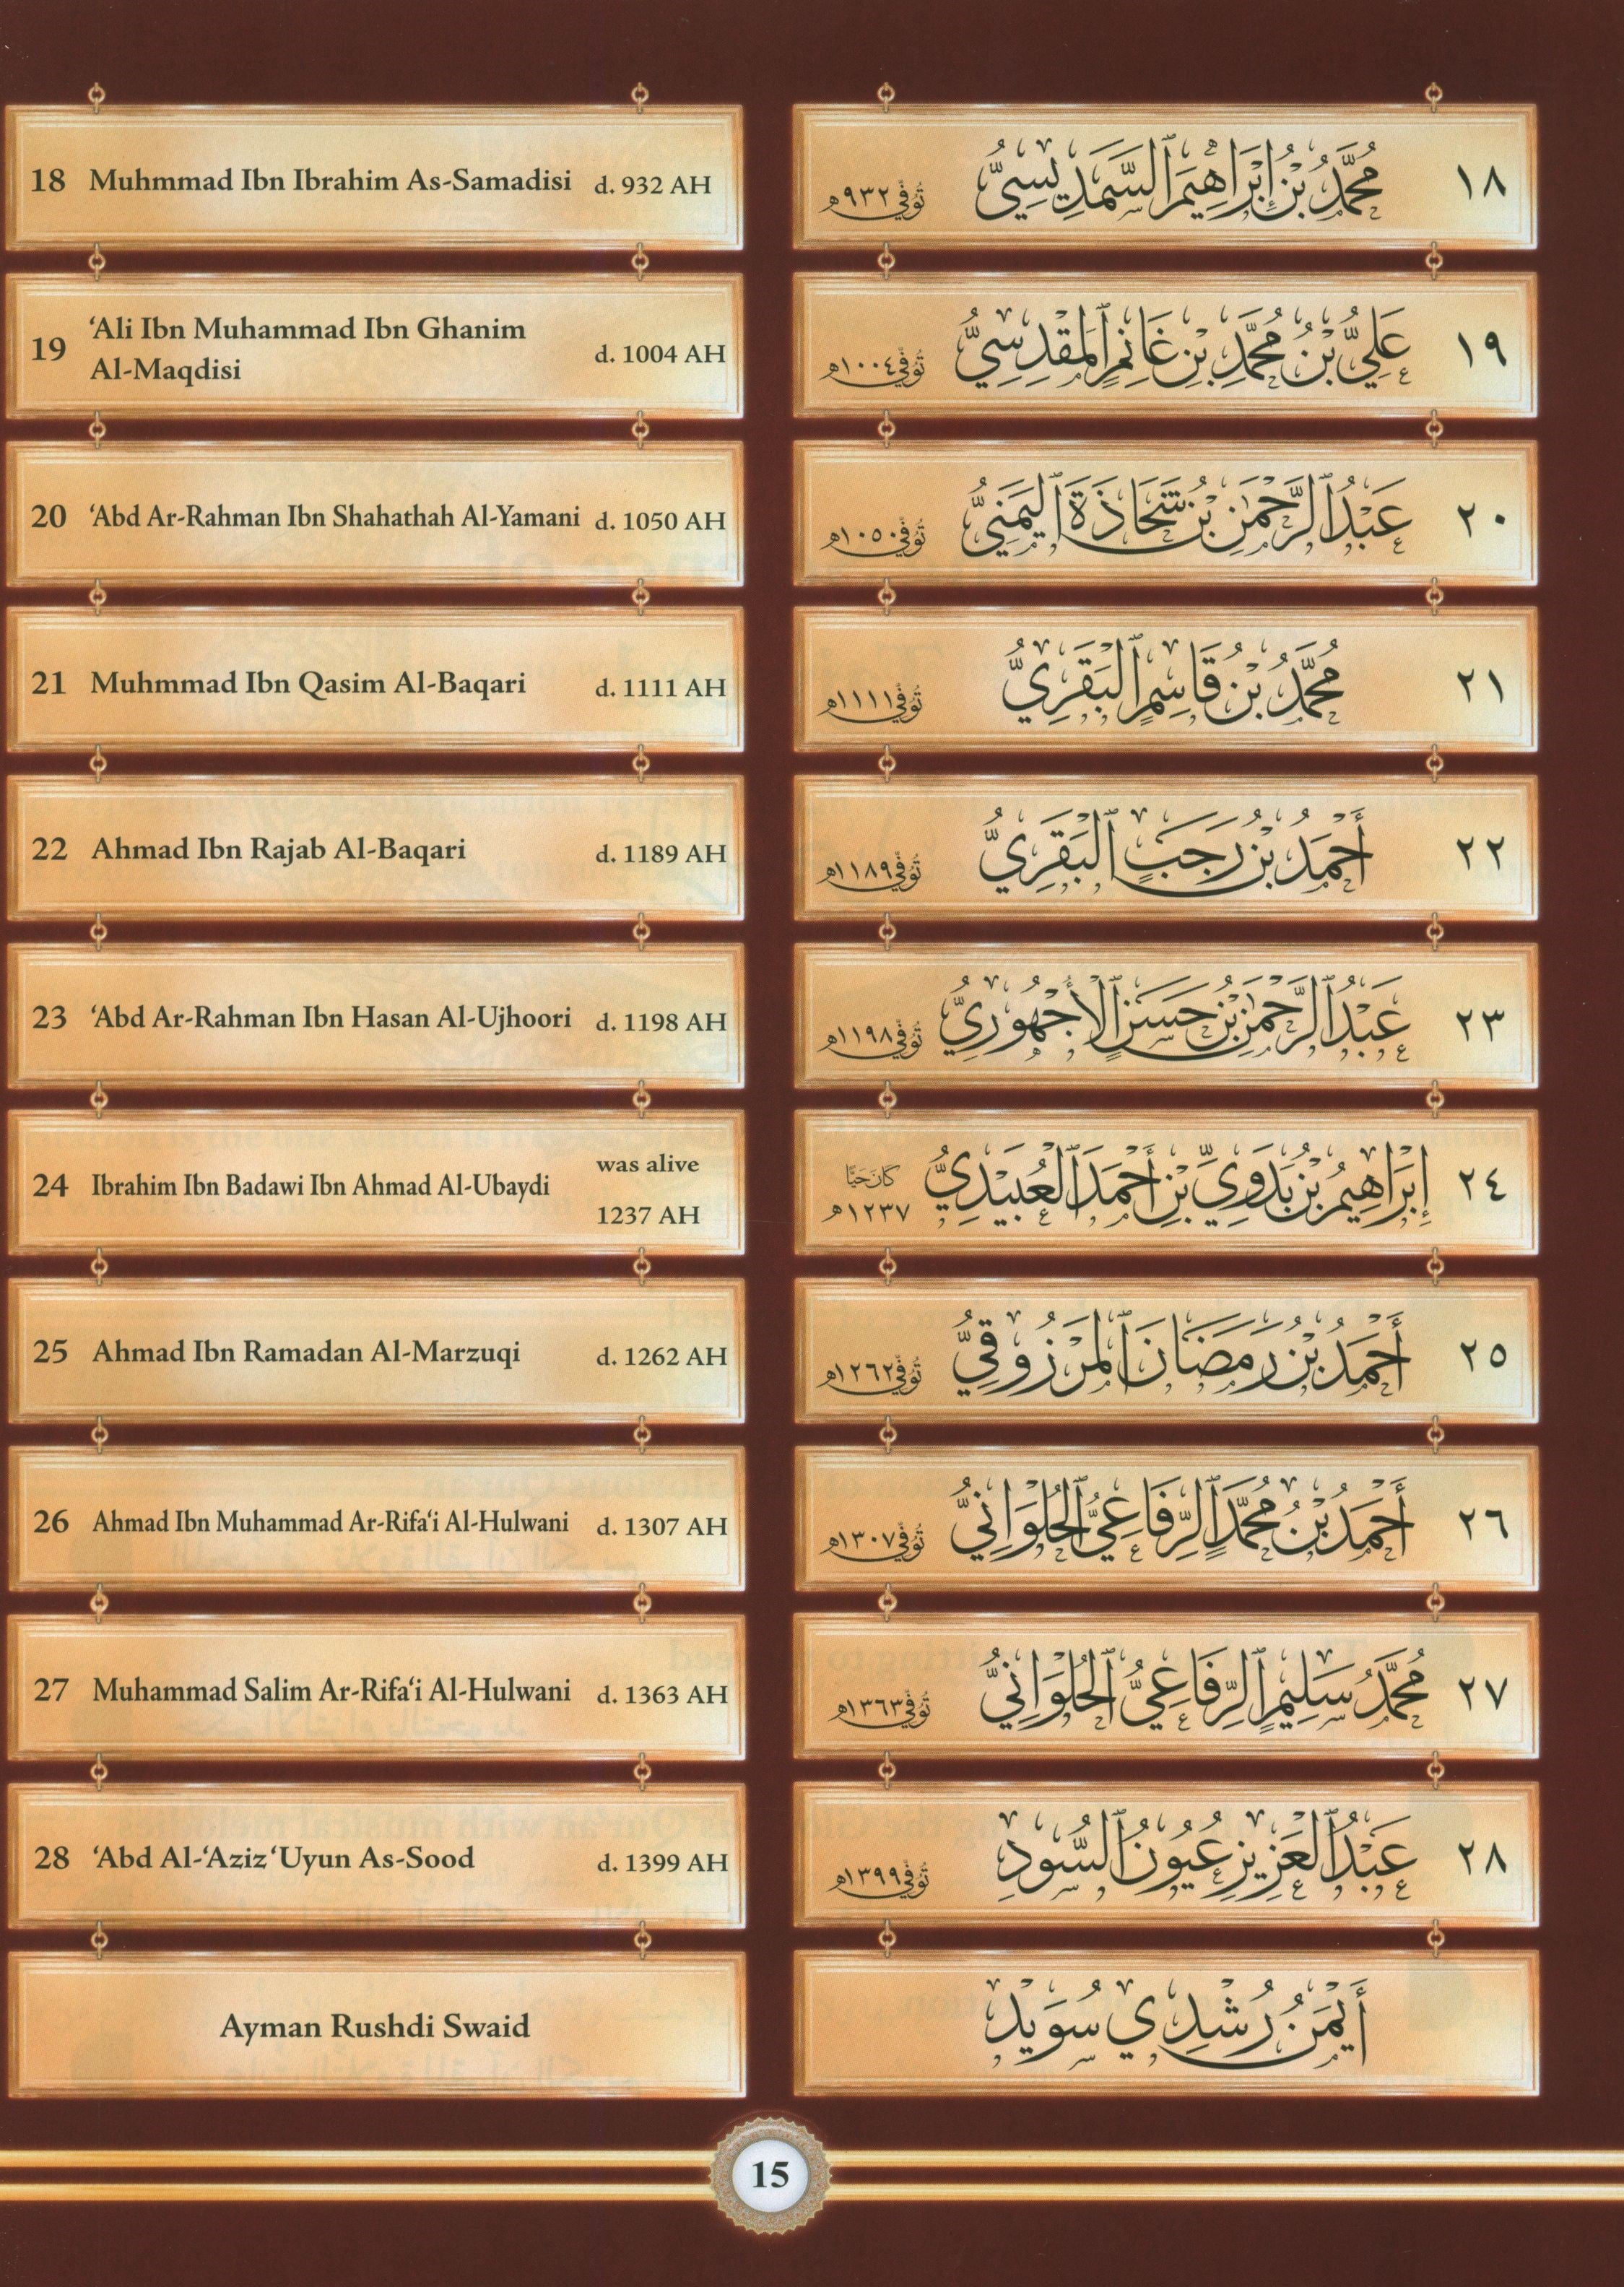 18 Muhmmad Ibn Ibrahim As-Samadisi d. 932 AH
١٨ مُحَمَّدُ بْنُ إِبْرَاهِيمَ ٱلسَّمَدِيسِيُّ تُوُفِّيَ ٩٣٢هـ
19 ‘Ali Ibn Muhammad Ibn Ghanim
Al-Maqdisi d. 1004 AH
١٩ عَلِيُّ بْنُ مُحَمَّدِ بْنِ غَانِمٍ ٱلْمَقْدِسِيُّ تُوُفِّيَ ١٠٠٤هـ
20 ‘Abd Ar-Rahman Ibn Shahathah Al-Yamani d. 1050 AH
٢٠ عَبْدُ ٱلرَّحْمَٰنِ بْنُ شَحَاذَةَ ٱلْيَمَنِيُّ تُوُفِّيَ ١٠٥٠هـ
21 Muhmmad Ibn Qasim Al-Baqari d. 1111 AH
٢١ مُحَمَّدُ بْنُ قَاسِمٍ ٱلْبَقَرِيُّ تُوُفِّيَ ١١١١هـ
22 Ahmad Ibn Rajab Al-Baqari d. 1189 AH
٢٢ أَحْمَدُ بْنُ رَجَبٍ ٱلْبَقَرِيُّ تُوُفِّيَ ١١٨٩هـ
23 ‘Abd Ar-Rahman Ibn Hasan Al-Ujhoori d. 1198 AH
٢٣ عَبْدُ ٱلرَّحْمَٰنِ بْنُ حَسَنٍ ٱلْأُجْهُورِيُّ تُوُفِّيَ ١١٩٨هـ
24 Ibrahim Ibn Badawi Ibn Ahmad Al-Ubaydi was alive
1237 AH
٢٤ إِبْرَاهِيمُ بْنُ بَدَوِيِّ بْنِ أَحْمَدَ ٱلْعُبَيْدِيُّ كَانَ حَيًّا
١٢٣٧هـ
25 Ahmad Ibn Ramadan Al-Marzuqi d. 1262 AH
٢٥ أَحْمَدُ بْنُ رَمَضَانَ ٱلْمَرْزُوقِيُّ تُوُفِّيَ ١٢٦٢هـ
26 Ahmad Ibn Muhammad Ar-Rifa‘i Al-Hulwani d. 1307 AH
٢٦ أَحْمَدُ بْنُ مُحَمَّدٍ ٱلرِّفَاعِيُّ ٱلْحُلْوَانِيُّ تُوُفِّيَ ١٣٠٧هـ
27 Muhammad Salim Ar-Rifa‘i Al-Hulwani d. 1363 AH
٢٧ مُحَمَّدُ سَلِيمٍ ٱلرِّفَاعِيُّ ٱلْحُلْوَانِيُّ تُوُفِّيَ ١٣٦٣هـ
28 ‘Abd Al-‘Aziz ‘Uyun As-Sood d. 1399 AH
٢٨ عَبْدُ ٱلْعَزِيزِ عُيُونُ ٱلسُّودِ تُوُفِّيَ ١٣٩٩هـ
Ayman Rushdi Swaid
أَيْمَنُ رُشْدِي سُوَيْد
15